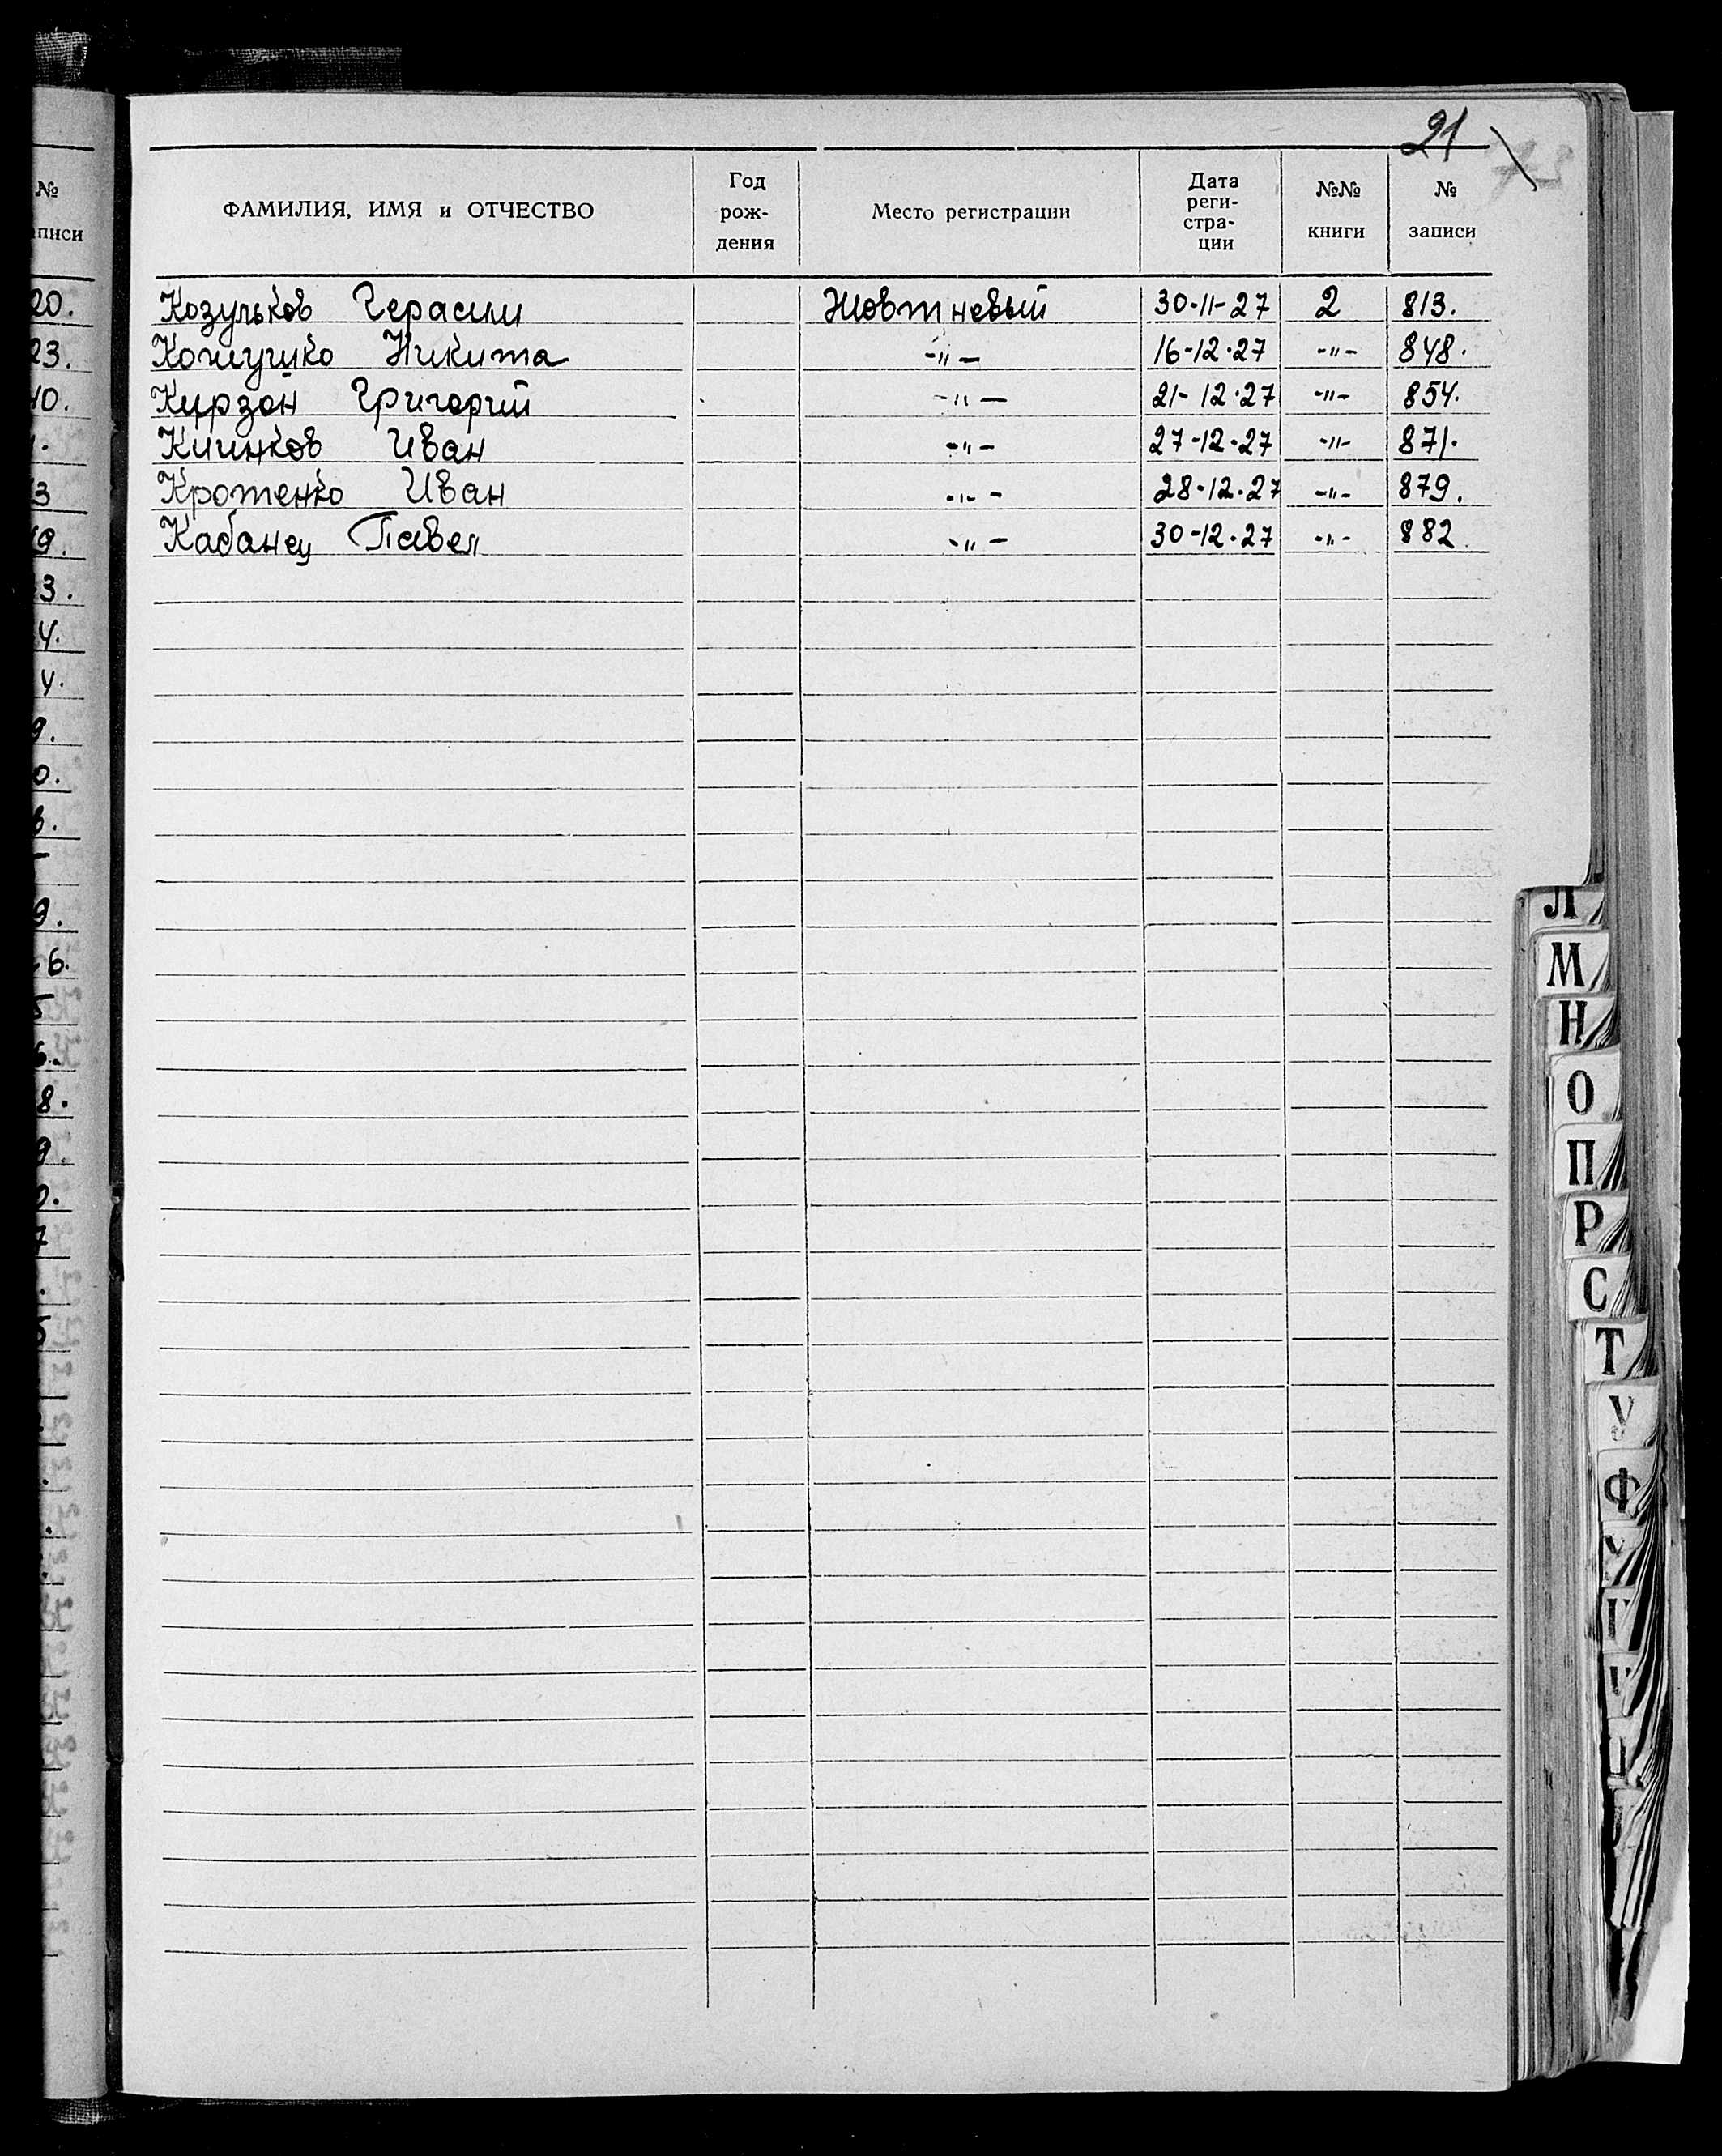 21
№
записи
ФАМИЛИЯ, ИМЯ и ОТЧЕСТВО
Год рож- дения
Место регистрации
Дата реги- стра- ции
№№ книги
№ записи
Козульков Герасим Жовтневый 30-11-27 2 813.
Кожушко Никита -"- 16-12-27 -"- 848.
Курзон Григорий -"- 21-12-27 -"- 854.
Иван -"- 27-12-27 -"- 871.
Кротенко Иван -"- 28-12-27 -"- 879.
Кабанец Павел -"- 30-12-27 -"- 882.
20.
23.
40.
3
19.
Л
М
Н
О
П
Р
С
Т
У
Ф